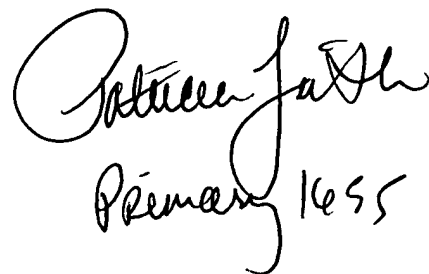 Patricia Faith
Primary 1655